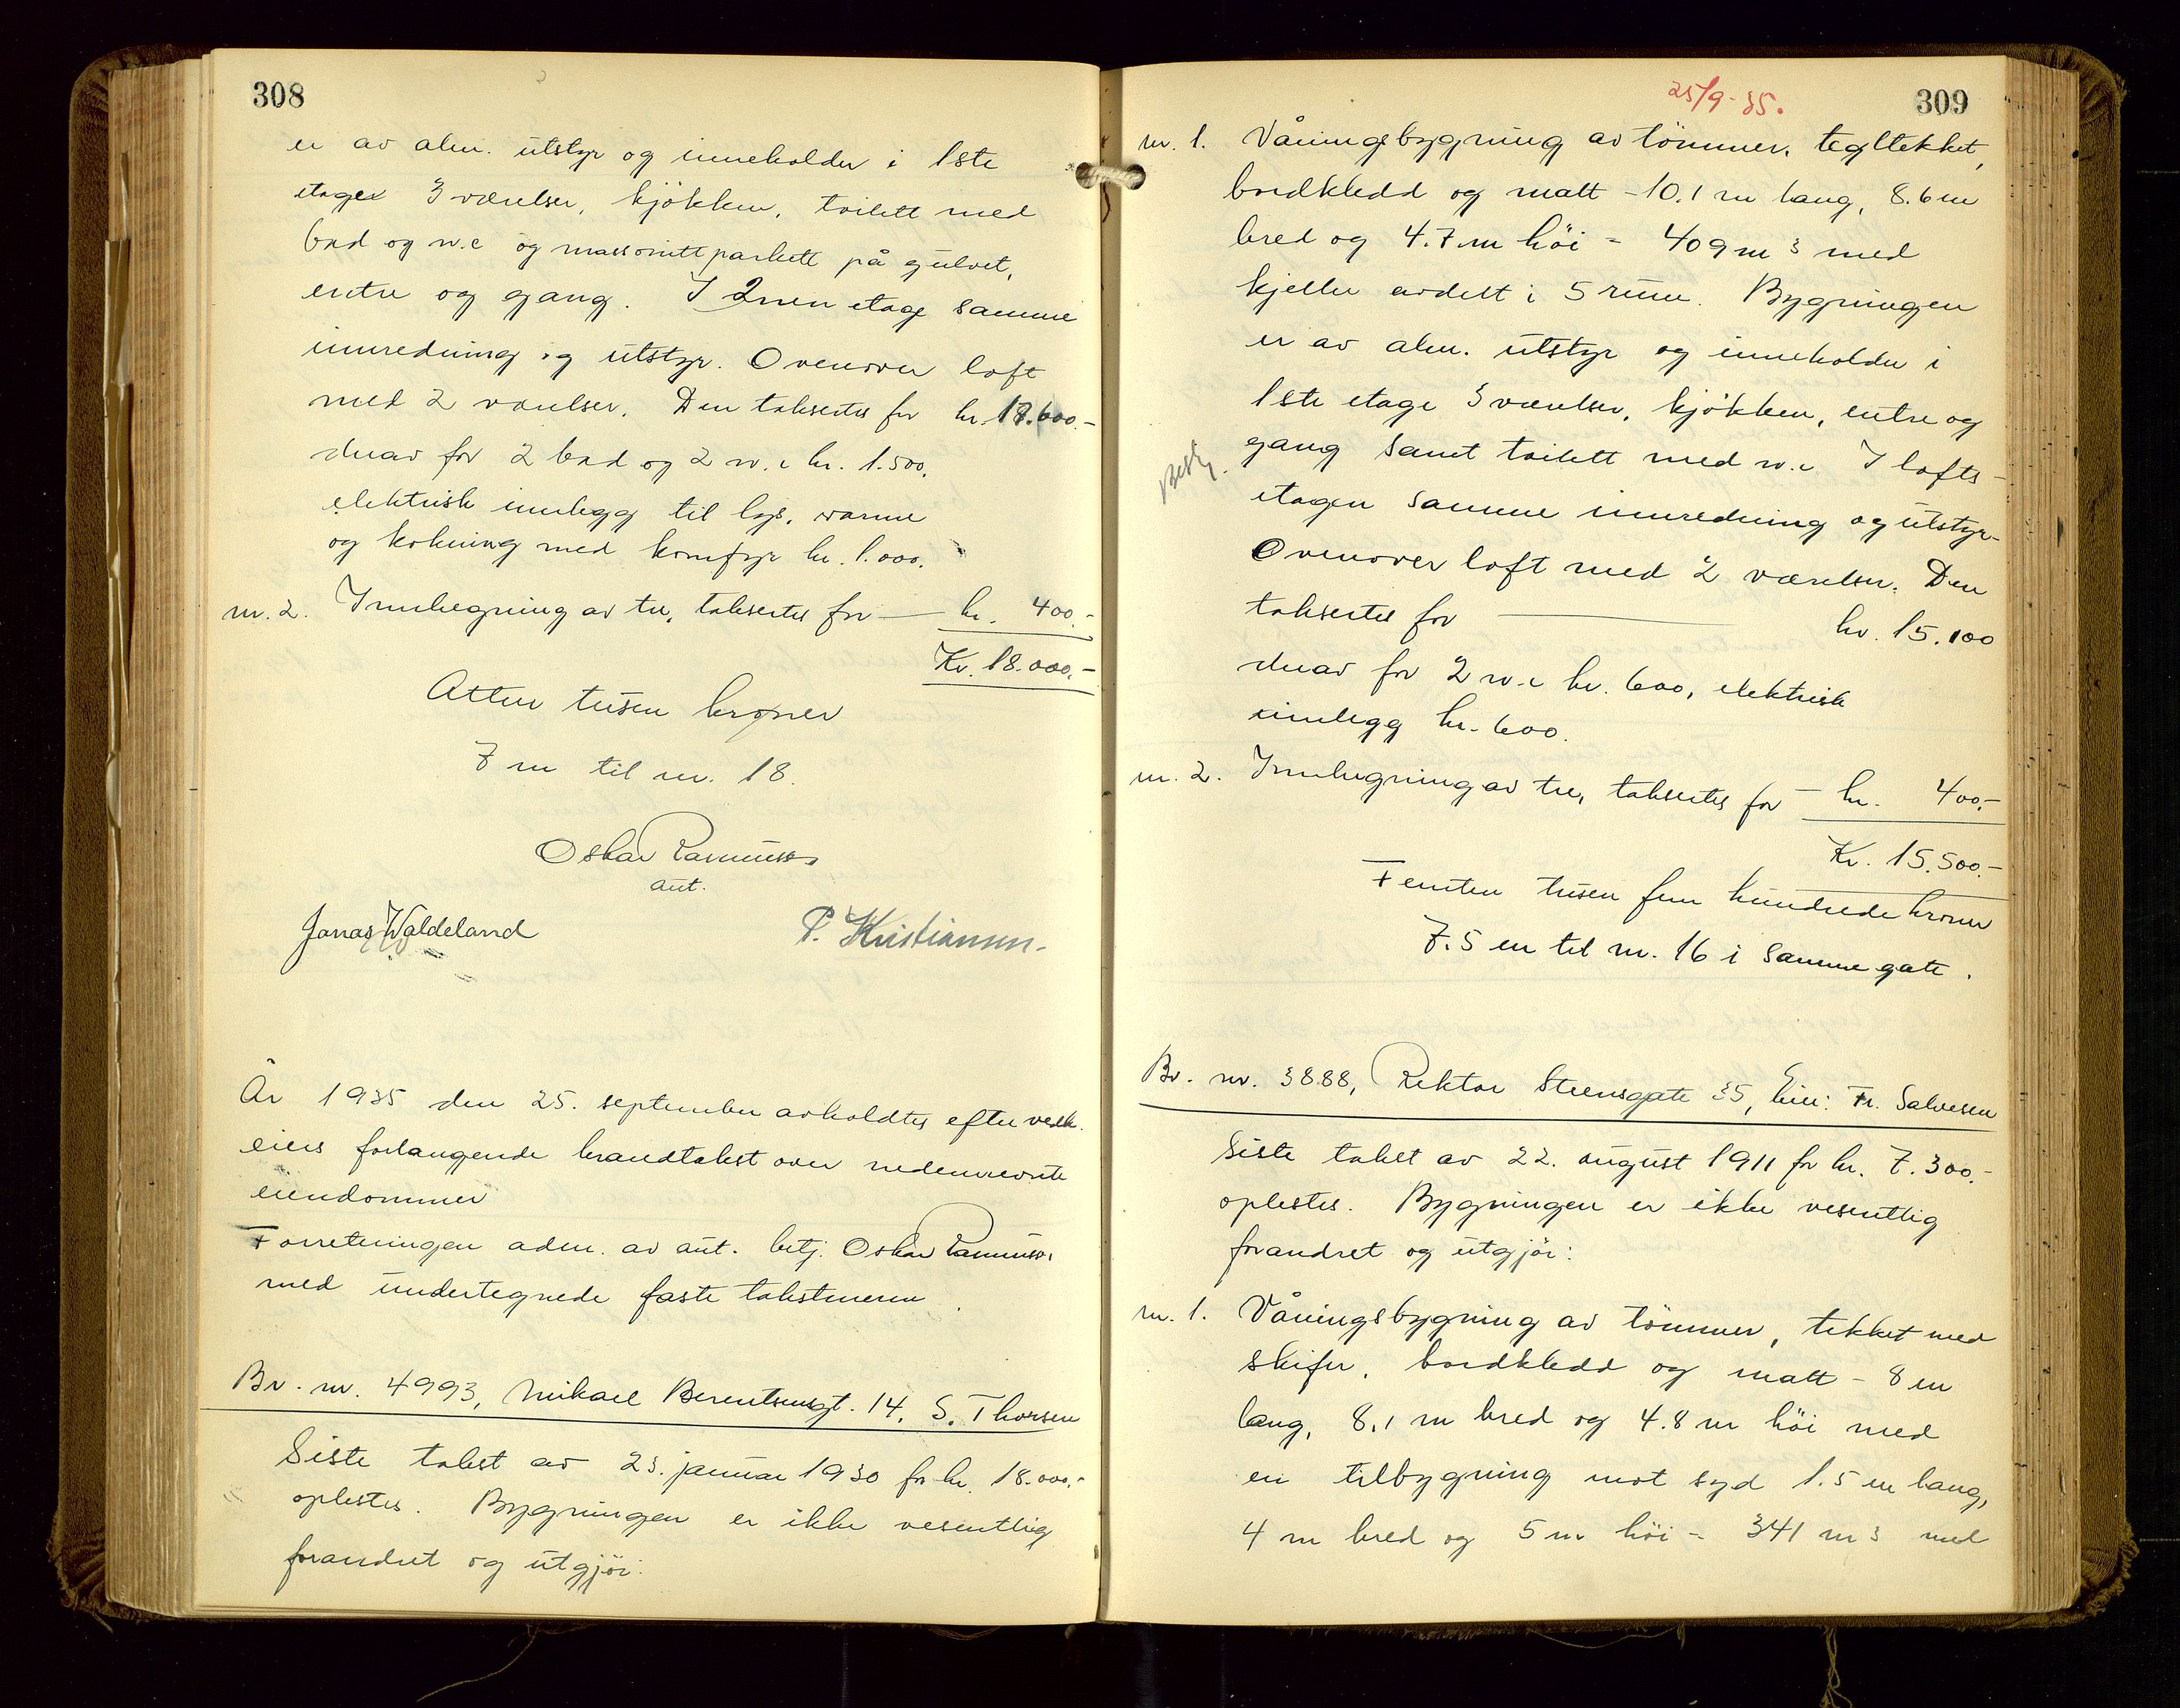 308
er av alm. utstyr og inneholder i 1ste
etage 3 værelser, kjøkken, toilett med
bad og w.c og massonittparkett på gulvet,
entre og gang. I 2nen etage samme
innredning og utstyr. Ovenover loft
med 2 værelser. Den takseres for kr. 17.600.-
derav for 2 bad og 2 w.c kr. 1.500.
elektrisk innlegg til lys, varme
og kokning med komfyr kr. 1.000.
nr. 2. Innhegning av tre, takseres for — kr. 400.-
Kr. 18.000.-
Atten tusen kroner
7 m til nr. 18.
Oskar Rasmussen
aut.
Jonas Waldeland P. Kristiansen.
År 1935 den 25. september avholdtes efter vedk.
eiers forlangende brandtakst over nedennevnte
eiendommer
Forretningen adm. av aut. betj. Oskar Rasmussen
med undertegnede faste takstmenn.
Br. nr. 4993, Mikael Berentsensgt. 14, S. Thorsen
Siste takst av 23. januar 1930 for kr. 18.000.-
oplestes. Bygningen er ikke vesentlig
forandret og utgjør:
25/9-35.
309
nr. 1. Våningsbygning av tømmer, tegltekket,
bordkledd og malt - 10.1 m lang, 8.6 m
bred og 4.7 m høi = 409 m3 med
kjeller avdelt i 5 rum. Bygningen
er av alm. utstyr og inneholder i
1ste etage 3 værelser, kjøkken, entre og
gang samt toilett med w.c. I lofts-
etagen samme innredning og utstyr.
Ovenover loft med 2 værelser. Den
takseres for — kr. 15.100
derav for 2 w.c kr. 600, elektrisk
innlegg kr. 600.
nr. 2. Innhegning av tre, takseres for — kr. 400.-
Kr. 15.500.-
Femten tusen fem hundrede kroner
7.5 m til nr. 16 i samme gate.
Br. nr. 3888, Rektor Steensgate 35, Eier: Fr. Salvesen
Siste takst av 22. august 1911 for kr. 7.300.-
oplestes. Bygningen er ikke vesentlig
forandret og utgjør:
nr. 1. Våningsbygning av tømmer, tekket med
skifer, bordkledd og malt - 8 m
lang, 8.1 m bred og 4.8 m høi med
en tilbygning mot syd 1.5 m lang,
4 m bred og 5 m høi = 341 m3 med